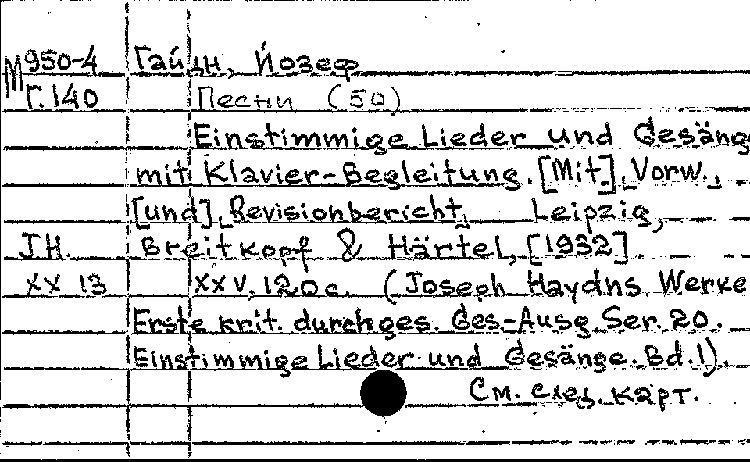 М950-4 Гайдн, Йозеф
Г.140 Песни (50)
Einstimmige Lieder und Gesänge
mit Klavier-Begleitung. [Mit] Vorw.,
[und] Revisionbericht, Leipzig,
J.H. Breitkopf & Härtel, [1932]
XX 13 XXV, 120 с. (Joseph Haydns Werke
Erste krit. durchges. Ges-Ausg. Ser. 20.
Einstimmige Lieder und Gesänge. Bd. 1).
См. след. карт.